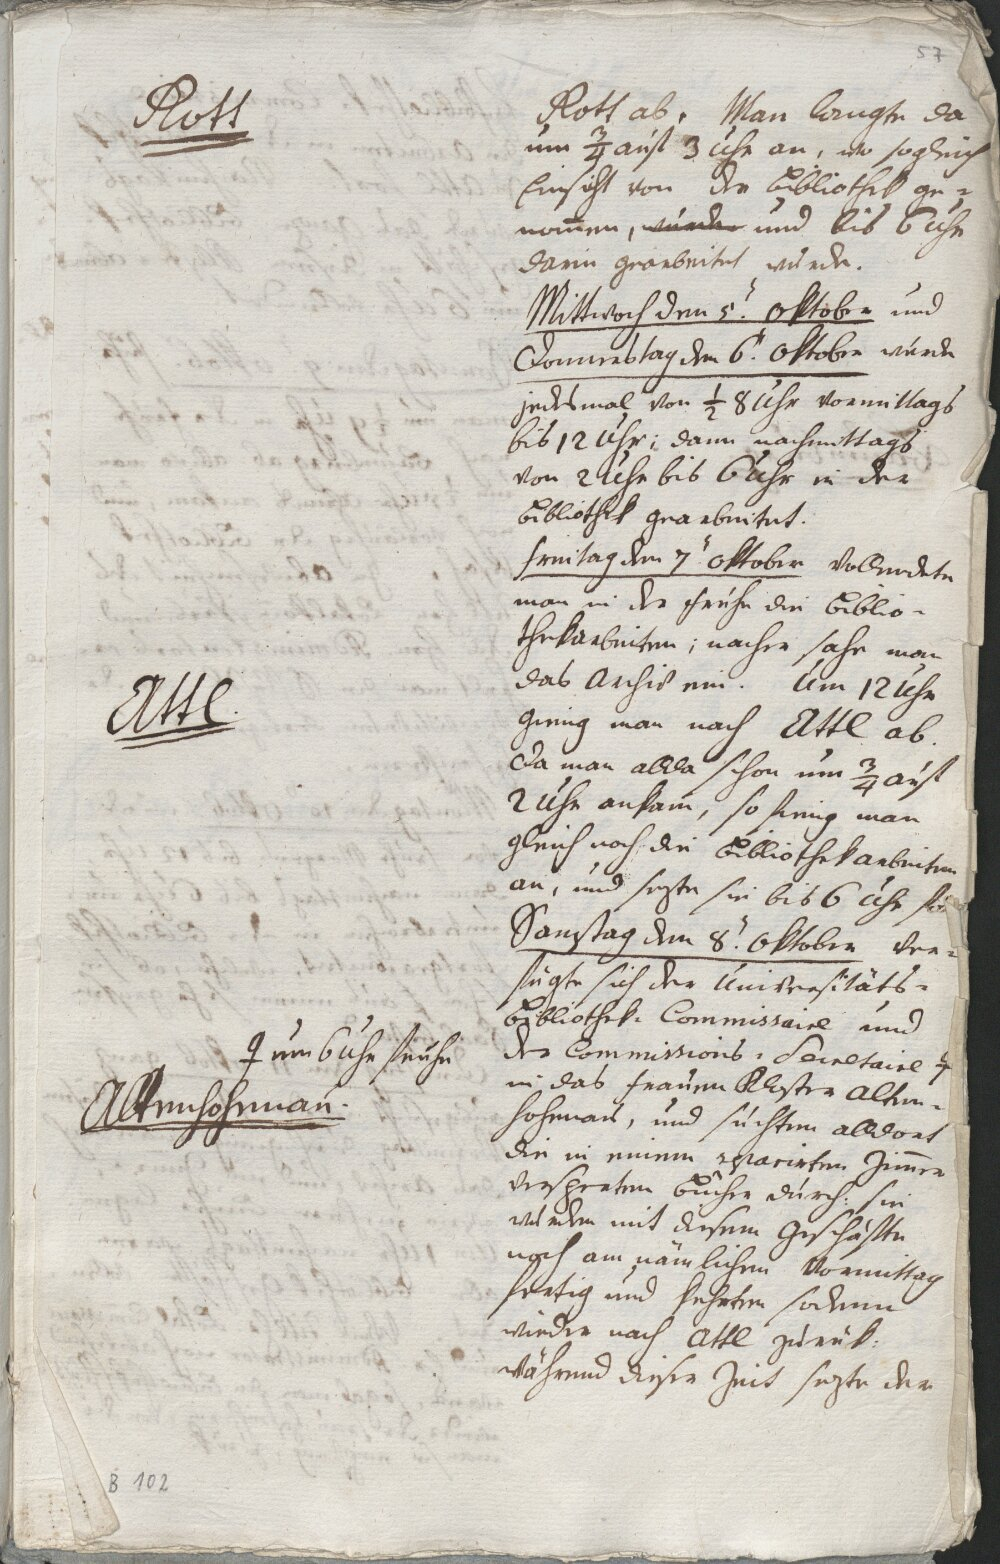 57
Rott
Rott ab. Man langte da
um 3/4 auf 3 Uhr an, wo sogleich
Einsicht von der Bibliothek ge=
nom̄en, wurde und bis 6 Uhr
darin gearbeitet wurde.
Mittwoch den 5t. Oktober und
Donnerstag den 6t. Oktober wurde
jedesmal von 1/2 8 Uhr vormittags
bis 12 Uhr; dann nachmittags
von 2 Uhr bis 6 Uhr in der
Bibliothek gearbeitet.
Freitag den 7t. Oktober vollendete
man in der Frühe die Biblio=
thekarbeiten; nacher sahe man
das Archiv ein. Um 12 Uhr
Attl.
gieng man nach Attl ab.
Da man allda schon um 3/4 auf
2 Uhr ankam, so fieng man
gleich noch die Bibliothekarbeiten
an, und sezte sie bis 6 Uhr
Samstag den 8t. Oktober ver=
fügte sich der Universitäts=
Bibliothek= Commissaire und
ꝗ um 6 Uhr fruhe
der Commissions= Secretaire ꝗ
Altenhohenau.
in das Frauen Kloster Alten=
hohenau, und suchten alldort
die in einem reparirten Zim̄er
versperten Bücher durch: sie
wurden mit diesem Geschäfte
noch am nämlichen Vormittag
fertig und kehrten sodenn
wieder nach Attl zurük.
Während dieser Zeit sezte der
B 102